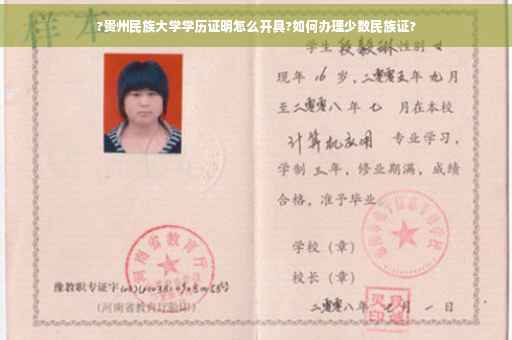 ?贵州民族大学学历证明怎么开具?如何办理少数民族证?
样本
学生 段毅琳 性别 女
现年 16 岁,二零零五年 九月
至二零零八年 七 月在本校
计算机应用 专业学习,
学制 三年,修业期满,成绩
合格,准予毕业
学校(章)
校长(章)
二零零八年 七月 一日
河南省教育厅
豫教职专证字
(河南省教育厅验印)